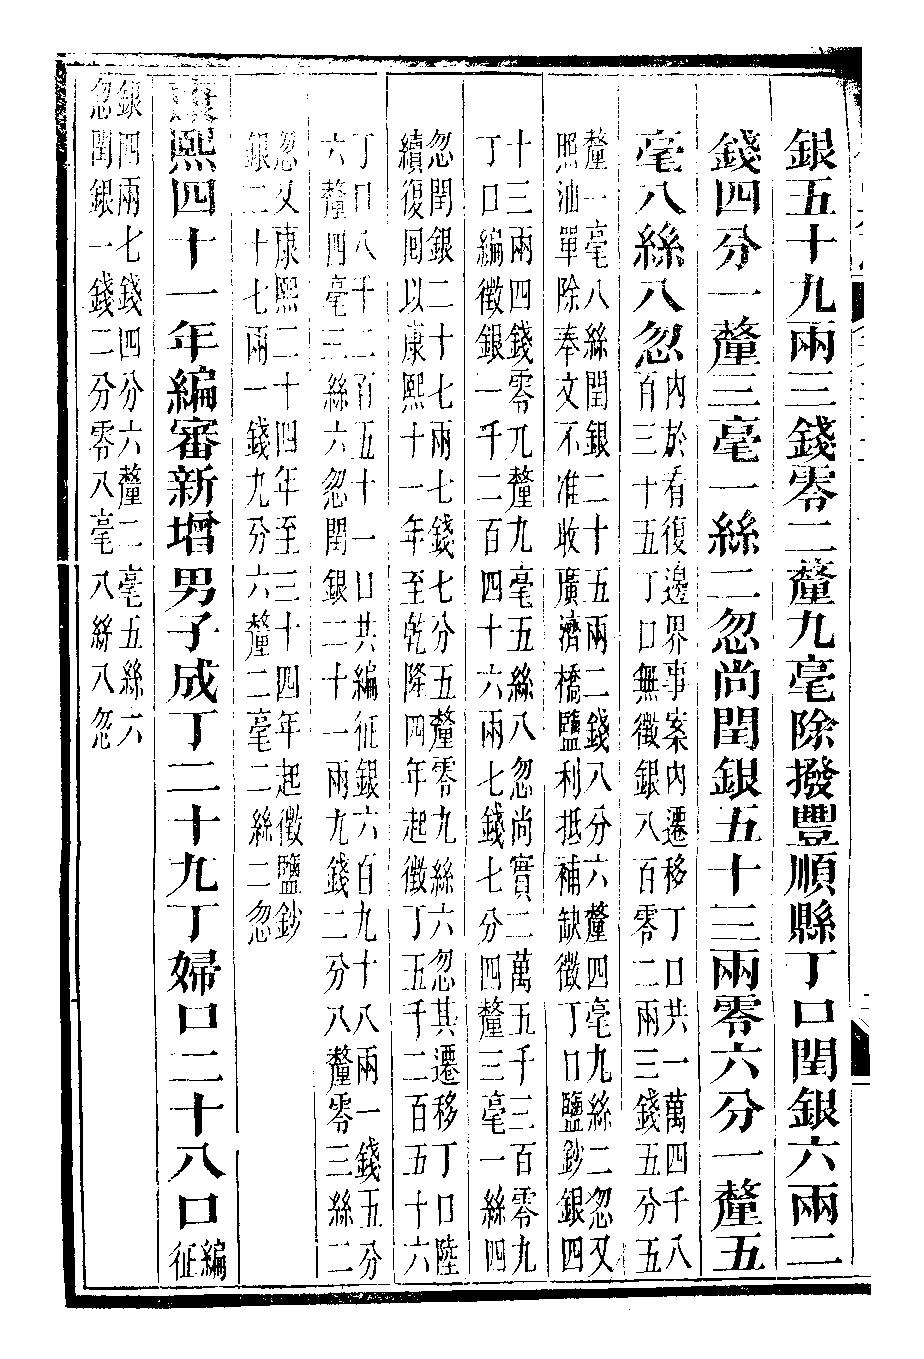 銀五十九兩三錢零二釐九毫除撥豐順縣丁口閏銀六兩二
錢四分一釐三毫一絲二忽尚閏銀五十三兩零六分一釐五
毫八絲八忽
內於看復邊界事案內遷移丁口共一萬四千八
百三十五丁口無徵銀八百零二兩三錢五分五
釐一毫八絲閏銀二十五兩二錢八分六釐四毫九絲二忽又
照汕單除奉文不准收廣濟橋鹽利抵補缺徵丁口鹽鈔銀四
十三兩四錢零兀釐九毫五絲八忽尚實二萬五千三百零九
丁口編徵銀一千二百四十六兩七錢七分四釐三毫一絲四
忽閏銀二十七兩七錢七分五釐零九絲六忽其遷移丁口陸
續復囘以康熙十一年至乾隆四年起徵丁五千二百五十六
丁口八千二百五十一口共編征銀六百九十八兩一錢五分
六釐四毫三絲六忽閏銀二十一兩九錢二分八釐零三絲二
忽又康熙二十四年至三十四年起徵鹽鈔
銀二十七兩一錢九分六釐二毫二絲二忽
康熙四十一年編審新增男子成丁二十九丁婦口二十八口
編
征
銀四兩七錢四分六釐二毫五絲六
忽閏銀一錢二分零八毫八絲八忽